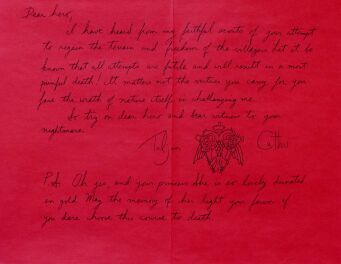 Dear hero,
I have heard from my faithful scouts of your attempt
to regain the terrain and freedom of the villagers but let it be
known that all attempts are futile and will result in a most
painful death! It matters not the virtues you carry for you
face the wrath of nature itself in challenging me.
So try on dear hero and bear witness to your
nightmare.
P.S. Oh yes, and your princess she is so lovely decorated
in gold. May the memory of her light your power if
you dare choose this course to death.